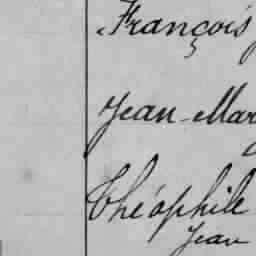 François
Jean-Mar
Théophile
Jean